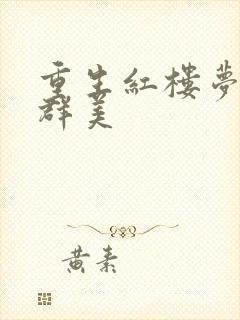 重生紅樓夢
群美
黃素